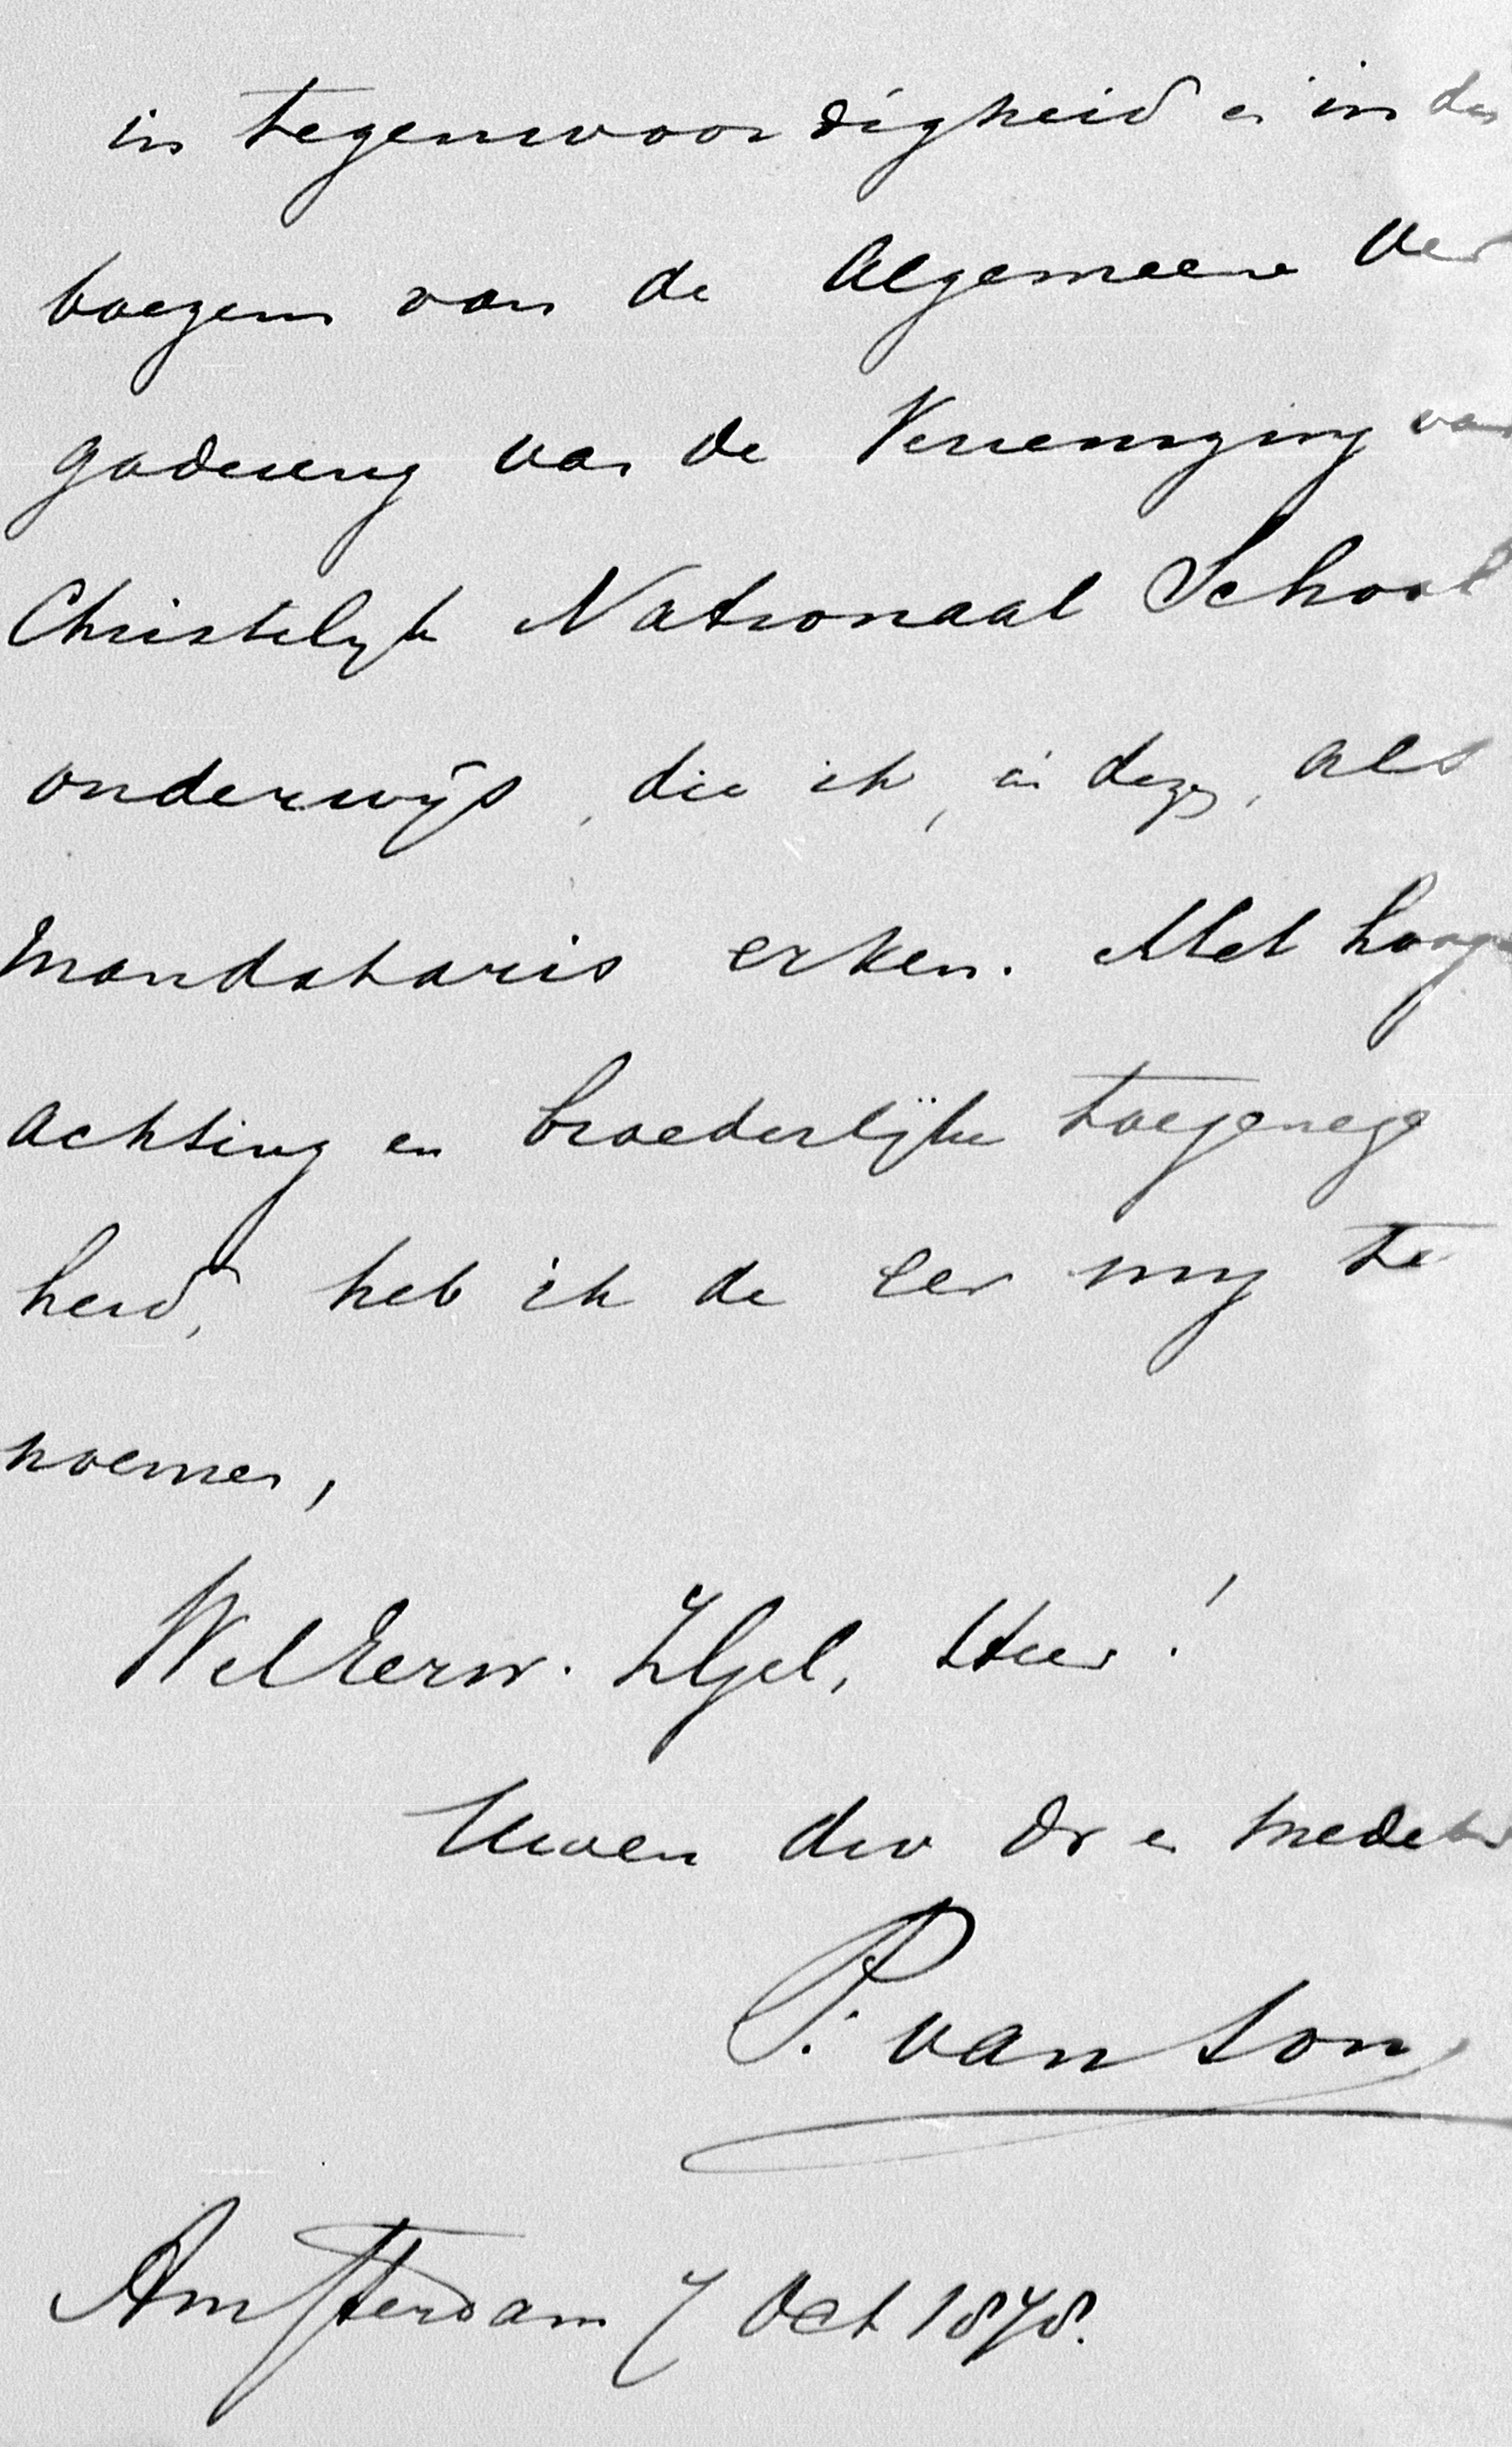 in tegenwoordigheid en in den
boezem van de Algemeene Ver
gadering van de Vereeniging van
Christelijk Nationaal School
onderwijs, die ik, in deze, als
Mandataris erken. Met hoog
achting en broederlijke toegenege
heid, heb ik de eer mij te
noemen,
WelEerw. ZGel. Heer!
Uwen dw Dr en medebr
P. van Son
Amsterdam 7 Oct 1878.